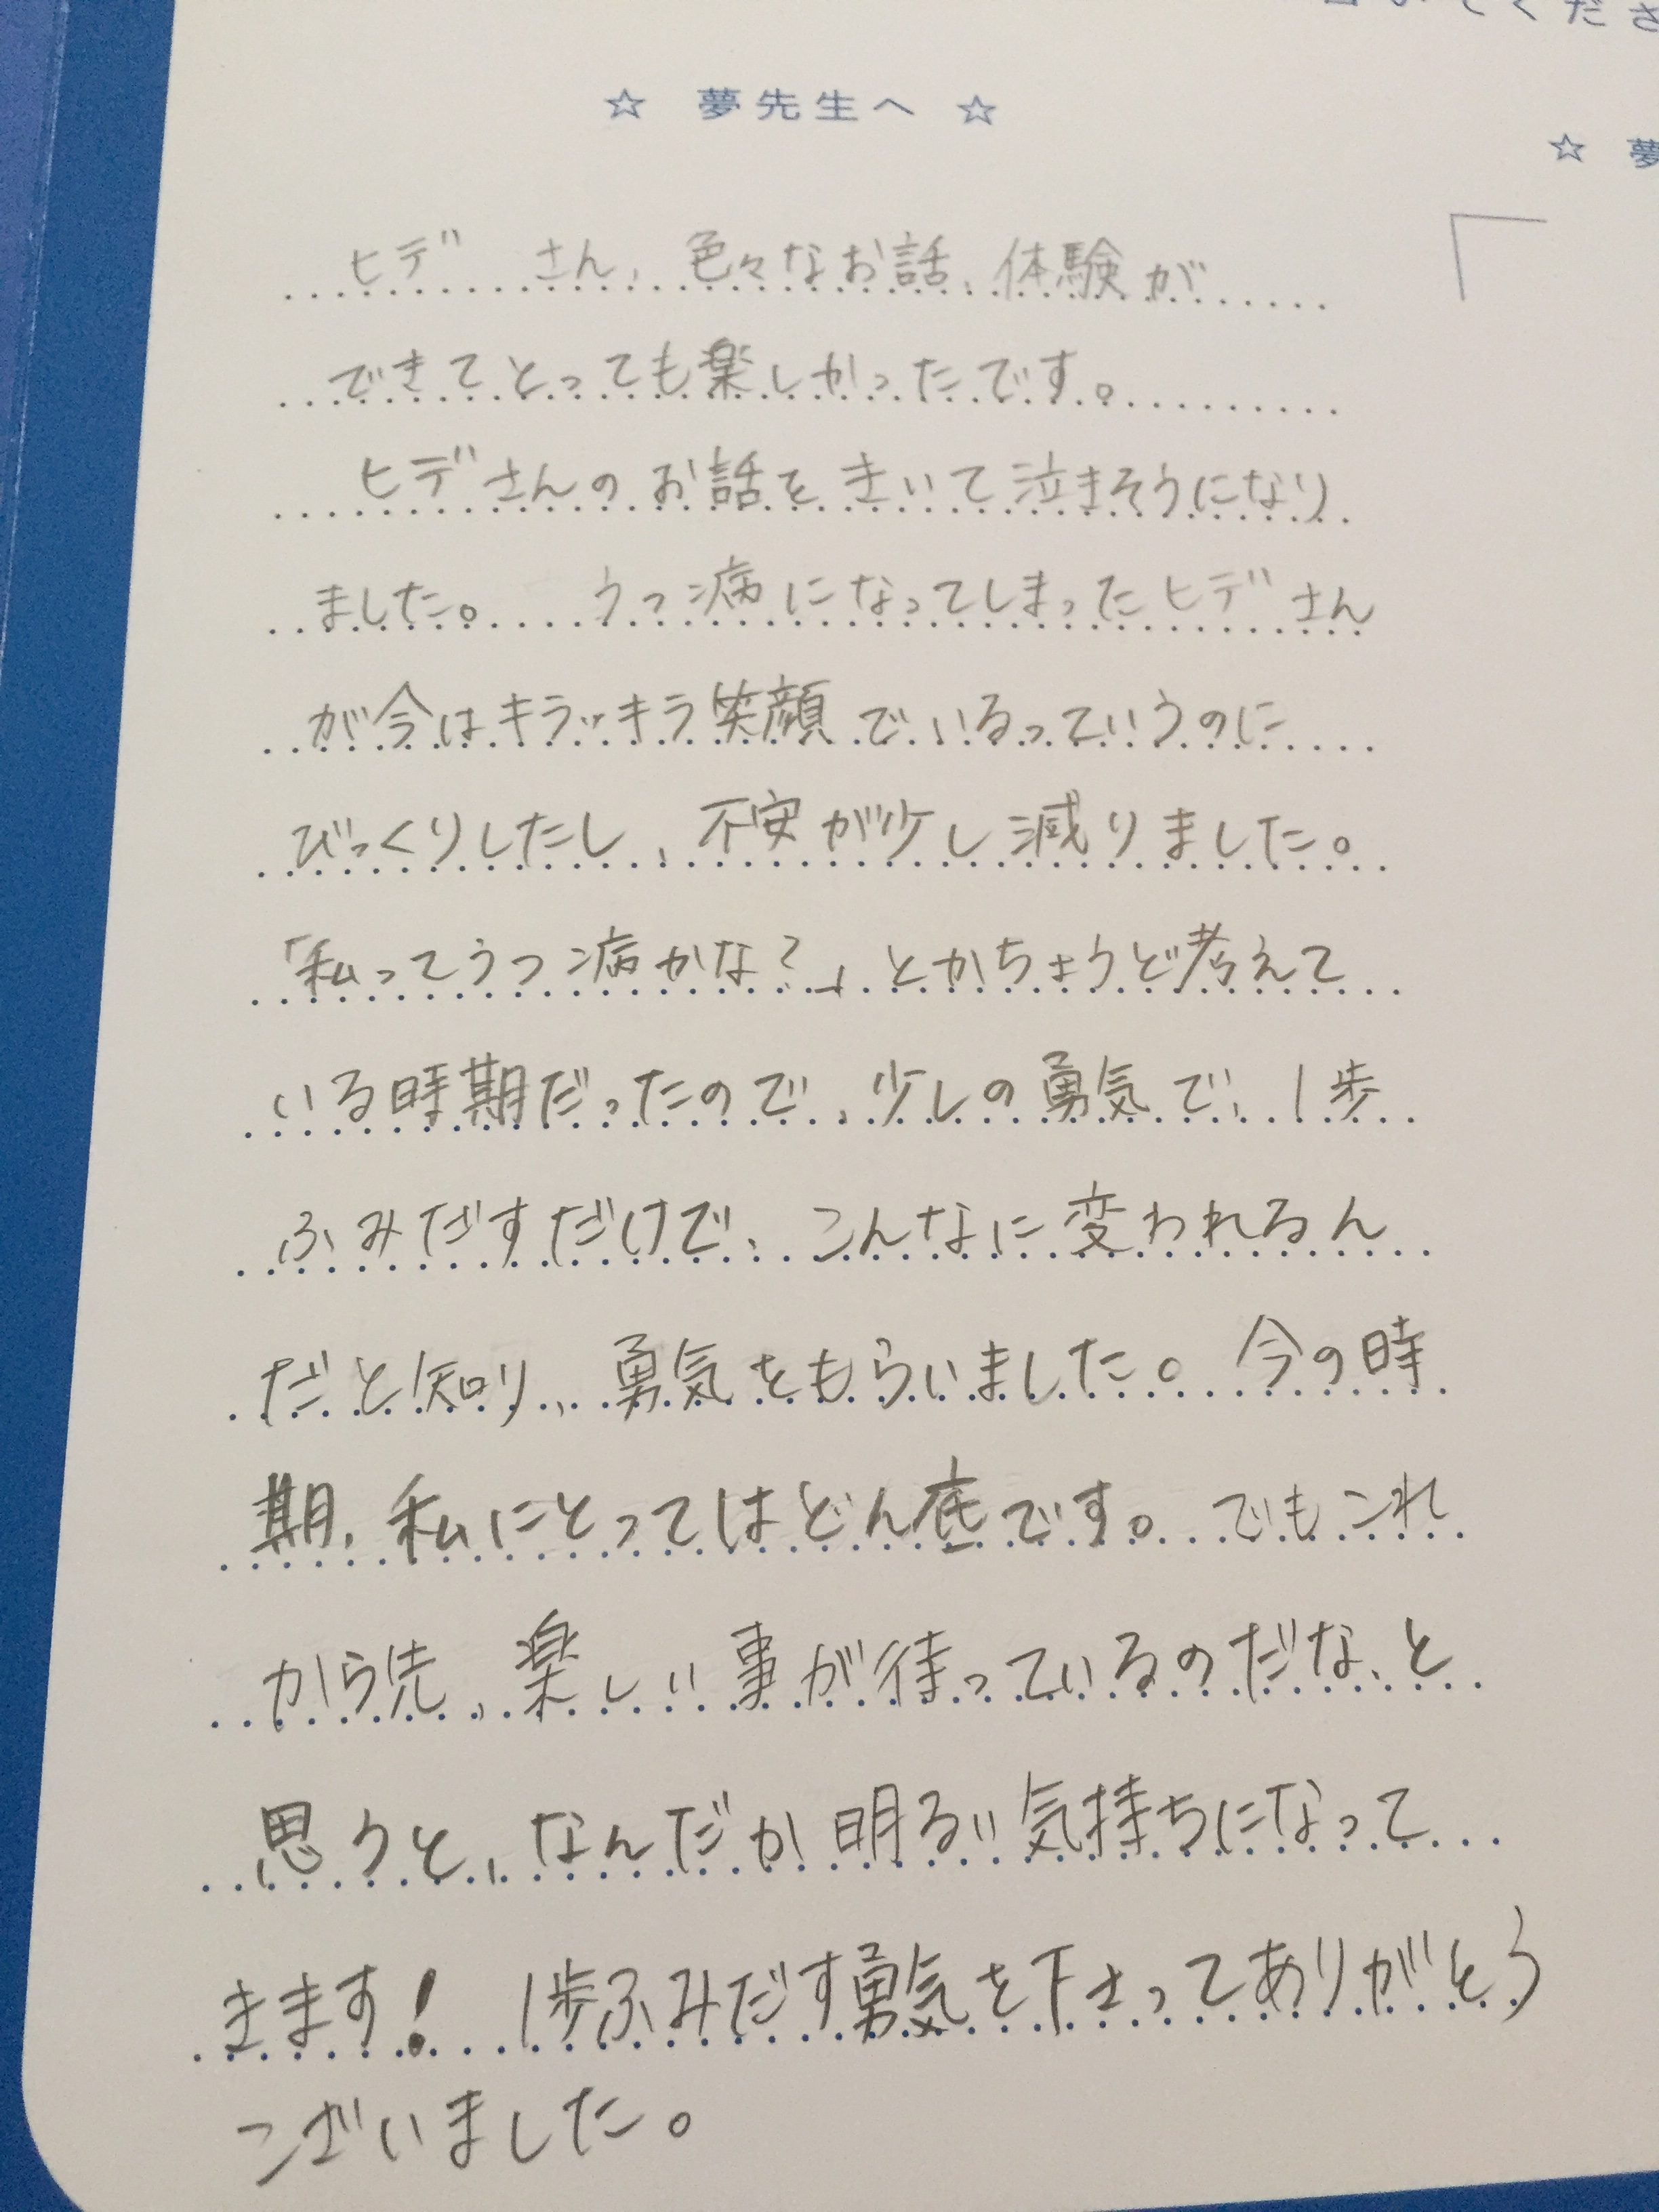 いてくださ
☆ 夢先生へ ☆
☆ 夢
ヒデ さん、色々なお話、体験が
できてとっても楽しかったです。
ヒデさんのお話をきいて泣きそうになり
ました。 うつ病になってしまったヒデさん
が今はキラッキラ笑顔でいるっていうのに
びっくりしたし、不安が少し減りました。
「私ってうつ病かな?」とかちょうど考えて
いる時期だったので、少しの勇気で、1歩
ふみだすだけで、こんなに変われるん
だと知り、勇気をもらいました。今の時
期、私にとってはどん底です。でもこれ
から先、楽しい事が待っているのだな、と
思うと、なんだか明るい気持ちになって
きます! 1歩ふみだす勇気を下さってありがとう
ございました。